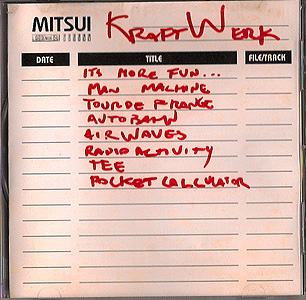 MITSUI
KRAFTWERK
DATE TITLE FILE/TRACK
ITS MORE FUN...
MAN MACHINE
TOUR DE FRANCE
AUTOBAHN
AIRWAVES
RADIO ACTIVITY
TEE
POCKET CALCULATOR